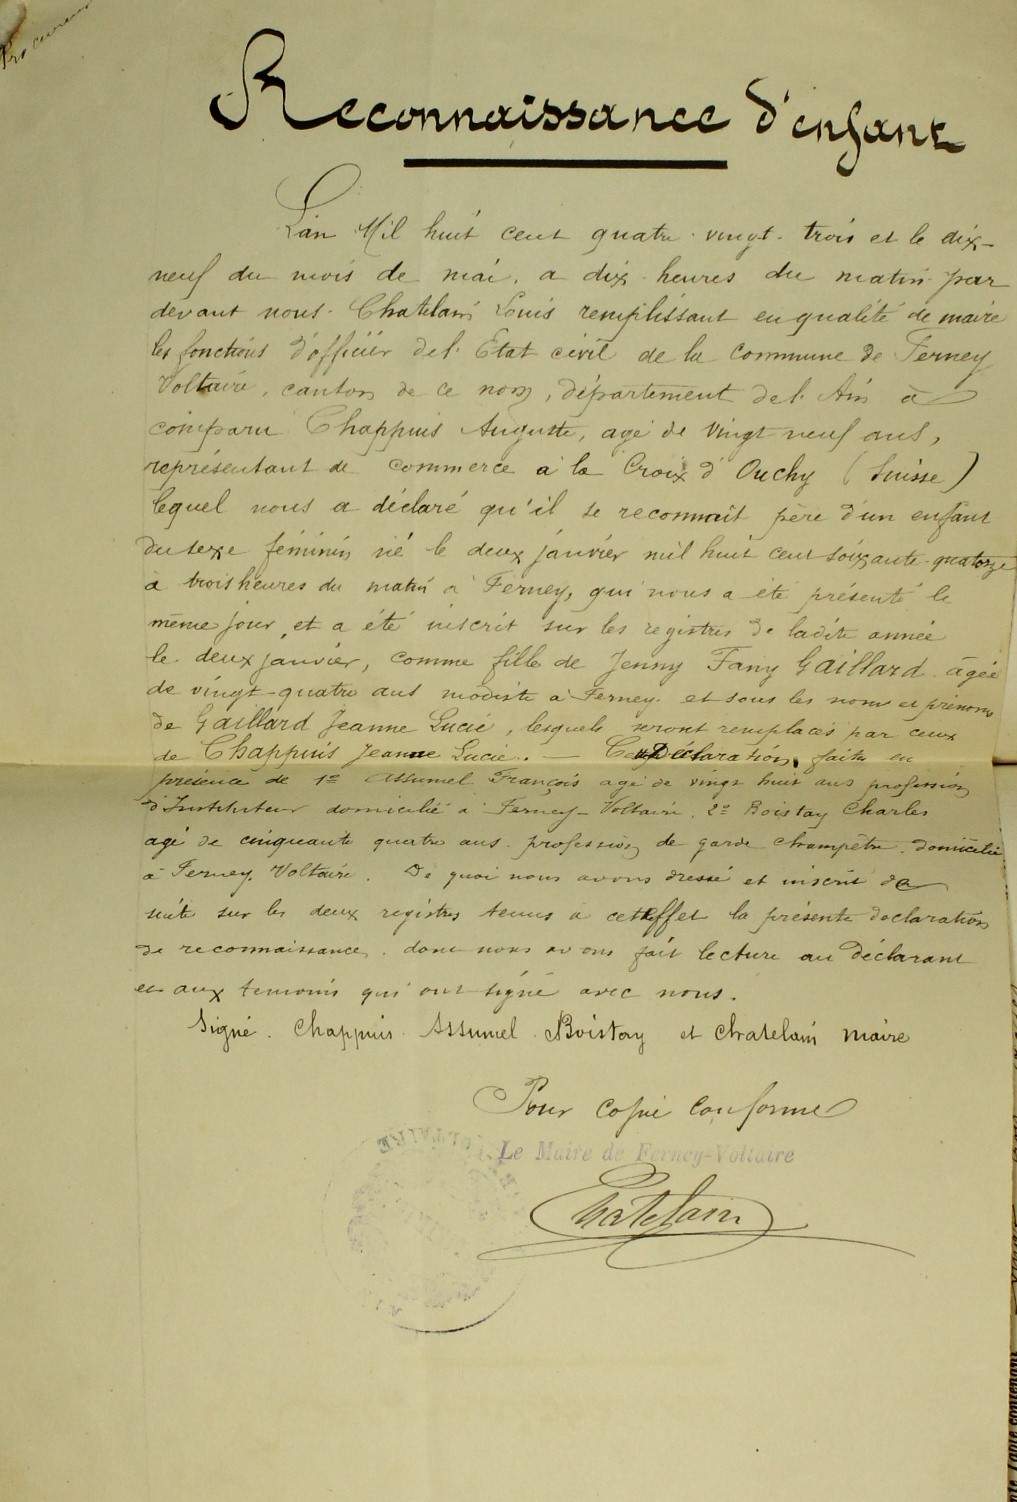 Reconnaissance d'enfant
L'an Mil huit cent quatre-vingt-trois et le dix-
neuf du mois de mai, a dix heures du matin par
devant nous Chatelain Louis remplissant en qualité de maire
les fonctions d'officier de l'Etat civil de la commune de Ferney
Voltaire, canton de ce nom, département de l'Ain à
comparu Chappuis Auguste, agé de vingt neuf ans,
représentant de commerce à la Croix d'Ouchy (Suisse)
lequel nous a déclaré qu'il se reconnait père d'un enfant
du sexe féminin né le deux janvier mil huit cent soixante-quatorze
à trois heures du matin à Ferney, qui nous a été présenté le
même jour, et a été inscrit sur les registres de ladite année
le deux janvier, comme fille de Jenny Fany Gaillard agée
de vingt-quatre ans modiste à Ferney et sous les noms et prénoms
de Gaillard Jeanne Lucie, lesquels seront remplacés par ceux
de Chappuis Jeanne Lucie. — Déclaration faite en
présence de 1º Assumel François agé de vingt huit ans profession
d'Instituteur domicilié à Ferney-Voltaire. 2º Boistay Charles
agé de cinquante quatre ans profession de garde champêtre domicilié
à Ferney Voltaire. De quoi nous avons dressé et inscrit de
suite sur les deux registres tenus à cet effet la présente declaration
de reconnaissance, dont nous avons fait lecture au déclarant
et aux temoins qui ont signé avec nous.
Signé. Chappuis Assumel Boistay et Chatelain maire
Pour copie conforme
Le Maire de Ferney-Voltaire
Chatelain